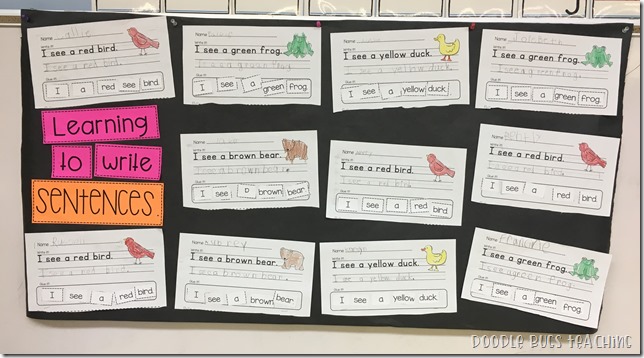 Name
Write it!
I see a red bird.
I see a red bird.
Glue it!
I a red see bird.
Name
Write it!
I see a green frog.
I see a green frog.
Glue it!
I see a green frog.
Name
Write it!
I see a yellow duck.
I see a yellow duck.
Glue it!
I see a yellow duck.
Name
Write it!
I see a green frog.
I see a green frog.
Glue it!
I see a green frog.
Learning
to write
SENTENCES.
Name
Write it!
I see a brown bear.
I see a brown bear.
Glue it!
I see a brown bear.
Name
Write it!
I see a red bird.
I see a red bird.
Glue it!
I see a red bird.
Name
Write it!
I see a red bird.
I see a red bird.
Glue it!
I see a red bird.
Name
Write it!
I see a red bird.
I see a red bird.
Glue it!
I see a red bird.
Name
Write it!
I see a brown bear.
I see a brown bear.
Glue it!
I see a brown bear
Name
Write it!
I see a yellow duck.
I see a yellow duck.
Glue it!
I see a yellow duck.
Name
Write it!
I see a green frog.
I see a green frog.
Glue it!
I see a green frog.
DOODLE BUGS TEACHING